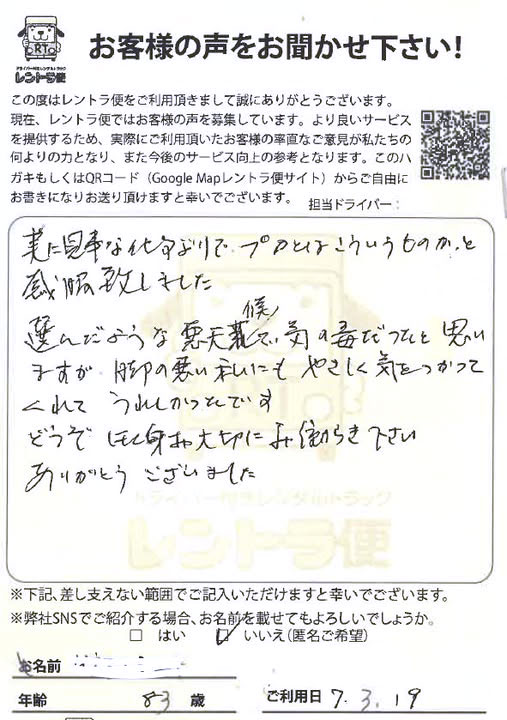 RT
ドライバー付きレンタルトラック
レントラ便
お客様の声をお聞かせ下さい!
この度はレントラ便をご利用頂きまして誠にありがとうございます。
現在、レントラ便ではお客様の声を募集しています。より良いサービス
を提供するため、実際にご利用頂いたお客様の率直なご意見が私たちの
何よりの力となり、また今後のサービス向上の参考となります。このハ
ガキもしくはQRコード(Google Mapレントラ便サイト)からご自由に
お書きになりお送り頂けますと幸いでございます。 担当ドライバー:
実に見事な仕事ぶりで プロとはこういうものか、と
感服致しました
候
選んだような悪天で、気の毒だったと思い
ますが 脚の悪い私にも やさしく気をつかって
くれて うれしかったです
どうぞ 御身お大切にお働らき下さい
ありがとう ございました
ドライバー付きレンタルトラック
レントラ便
※下記、差し支えない範囲でご記入いただけますと幸いでございます。
※弊社SNSでご紹介する場合、お名前を載せてもよろしいでしょうか。
□ はい □ いいえ(匿名ご希望)
お名前
年齢 83 歳 ご利用日 7.3.19